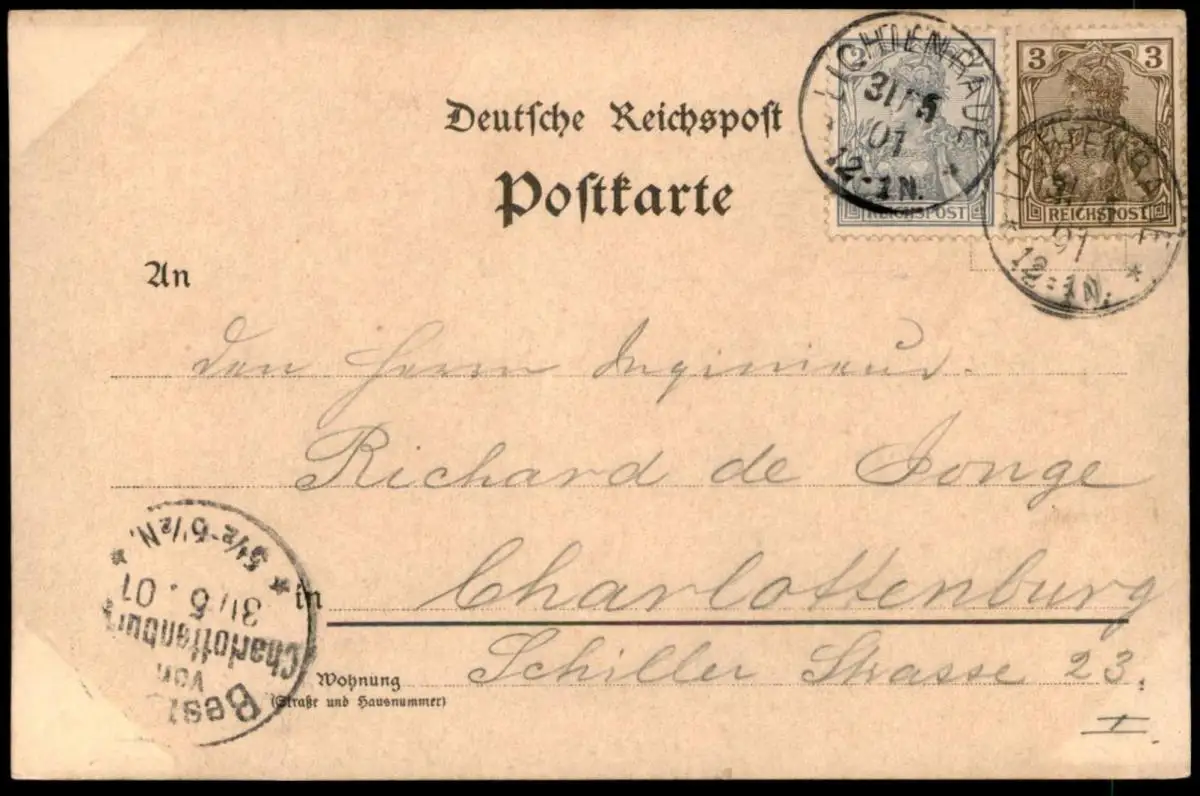 Deutsche Reichspost
Postkarte
2
REICHSPOST
3 3
REICHSPOST
LICHTENRADE
31 5
01
12-1N.
LICHTENRADE
01
12-1N.
An
Den Herrn Inginieur.
Richard de Jonge
in Charlottenburg
Wohnung
(Straße und Hausnummer)
Schiller Strasse 23.
I.
Best
von
Charlottenburg
31/5.01
5½-6½N.